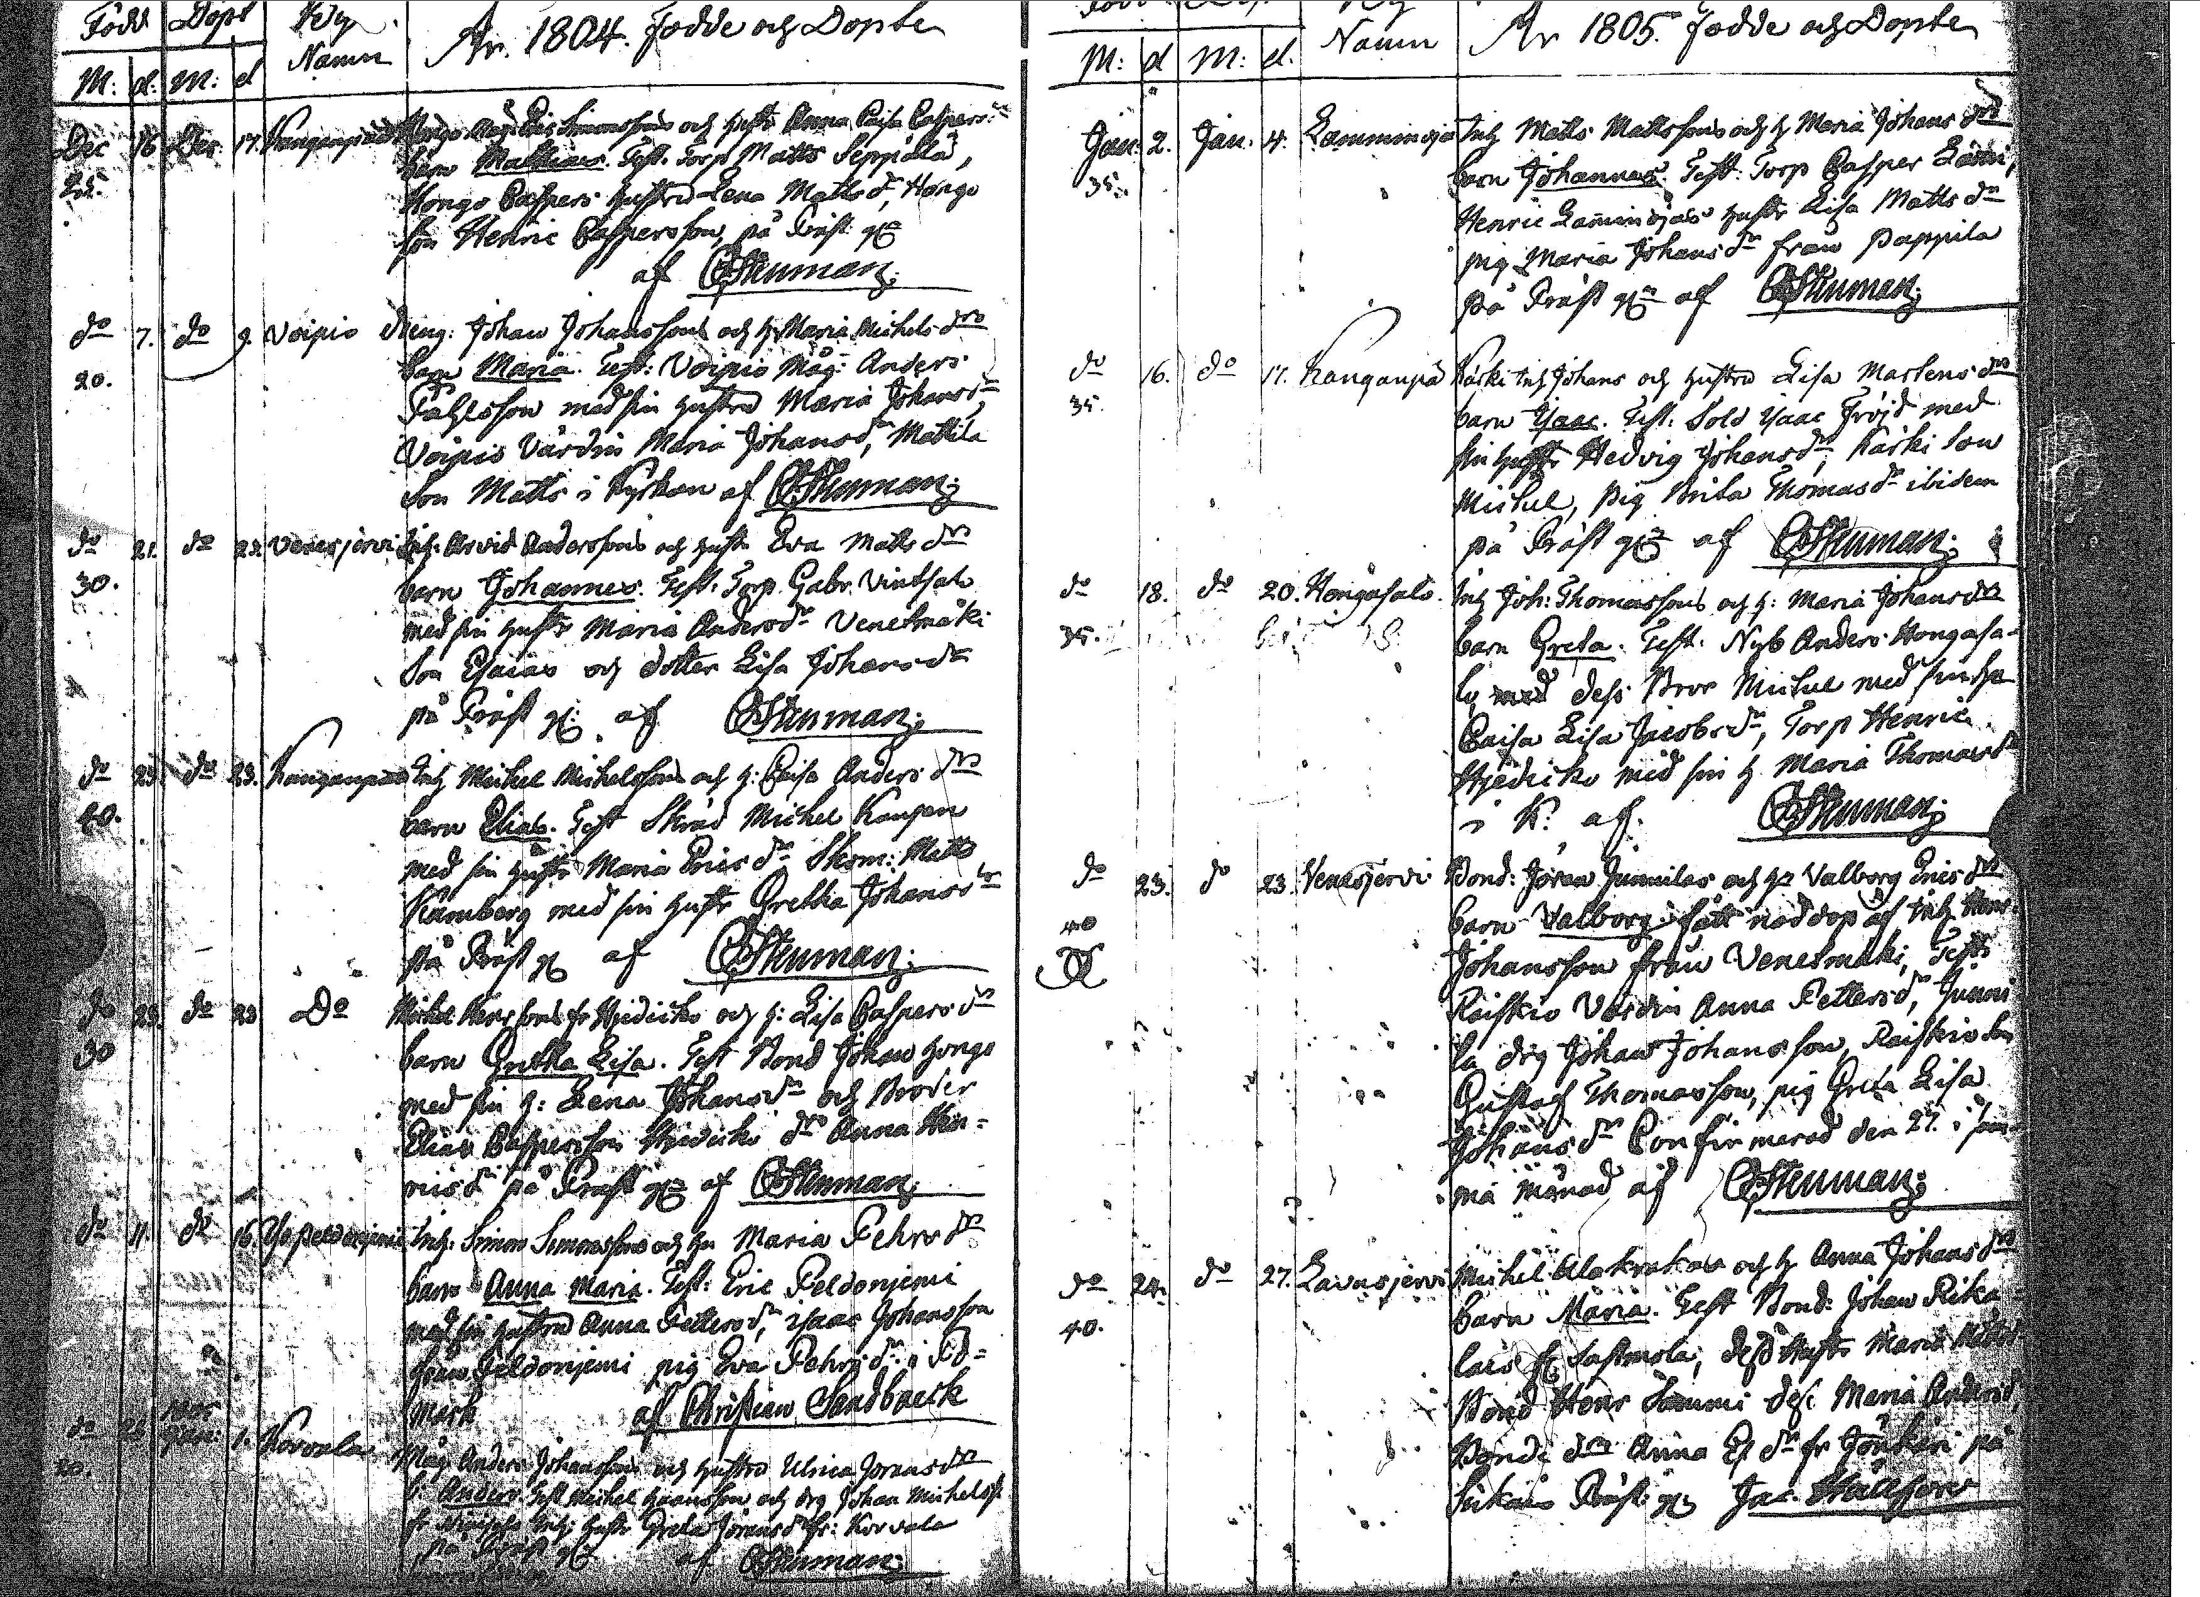 Född Dopt By
Namn
År. 1804. Födde och Döpte
M: d: M: d
Dec 16 Dec 17. Kanganpää Hongo Måg Eric Simonssons och hustr Anna Caisa Caspers
25.
barn Mathias. Test. Torp Matts Seppälä,
Hongo Caspers hustru Lena Matts dr, Hongo
son Henric Caspersson, på Präst g.
af CStenman:
do 7. do 9. Voipio dreng: Johan Johanssons och h. Maria Michels drs
20.
barn Maria. Test: Voipio Måg: Anders
Påhlsson med sin hustru Maria Johans dr
Voipio Värdin Maria Johansdr, Mattila
son Matts i Kyrkan af CStenman:
do 21. do 22. Venesjervi Inh: Arvid Anderssons och hustr Eva Matts drs
30.
barn Johannes. Test: Torp. Gabr. Vintsalo
med sin hustr Maria Anders dr Venetmäki
son Esaias och dotter Lisa Johans dr
på Präst g: af CStenman:
do 23. do 23. Kanganpää Inh Michel Michelssons och h: Caisa Anders drs
40.
barn Elias. Test Skräd Michel Kangen
med sin hustr Maria Erics dr Skom: Matts
Kämberg med sin hustr Gretha Johans dr
på Präst g af CStenman:
do 22. do 23 Do Michel Henrssons fr Hjedicko och h: Lisa Caspers drs
30
barn Gretha Lisa. Test Bond Johan Hongo
med sin h: Lena Johansdr och Broder
Elias Caspersson Hjedicko dr Anna Hen=
rics dr på Präst g af CStenman:
do 11. do 16. Inh: Simon Simonssons och hu Maria Pehrs drs
barn Anna Maria. Test: Eric Peldonjemi
med sin hustru Anna Petters dr, isaac Johansson
från Peldonjemi pig Eva Pehrs dr i Påd=
mark af Christian Sandbaeck
do Jan: 1. Korvala Måg Anders Johanssons och hustru Ulrica Jörans drs
20.
b: Anders. Test Michel Göransson och drg Johan Michelss.
Inh: hustr Greta Jörans dr fr: Korvala
på Präst g af CStenman:
Namn
År 1805. Födde och Döpte
M: d M: d.
Jan: 2. Jan. 4. Lamminoja Inh Matts Mattssons och h Maria Johans drs
35.
barn Johannes. Test: Torp Casper Lammi,
Henric Laminojas hustr Lisa Matts dr
pig Maria Johans dr från Pappila
på Präst g af CStenman:
do 16. do 17. Kanganpä Kårki Inh Johans och hustru Lisa Martens drs
35.
barn Isaac. Test: Sold Isaac Fröjd med
sin hustr Hedvig Johans dr, Kårki son
Michel, pig Brita Thomas dr ibidem
på Präst g af CStenman:
do 18. do 20. Hongasalo. Inh Joh: Thomassons och h: Maria Johansdrs
35.
barn Greta. Test: Nyb Anders Hongasa=
lo, med dess Bror Michel med sin h
Caisa Lisa Jacobs dr, Torp Henric
Hjedicko med sin h Maria Thomas dr
i K. af. CStenman:
do 23. do 23. Venesjervi Bond: Jöran Junnilas och h Valborg Erics drs
40
barn Valborg fått nöddop af Inh Henr.
Johansson från Venetmäki, Test:
Raiskio Värdin Anna Petters dr, Junni
la drg Johan Johansson, Raiskio son
Gustaf Thomasson, pig Greta Lisa
Johans dr Confirmerad den 27. i sam=
ma månad af CStenman:
do 24. do 27. Lavasjervi Michel Alakrakas och h Anna Johans drs
40.
barn Maria. Test Bond: Johan Rika=
lais fr Sastmola, dess Hustr Maria Matts
Bond Henr Sammi dess Maria Anders dr,
Bonde drn Anna Es dr fr Jonkari på
Sukais Präst: g: Jac. Hällfors